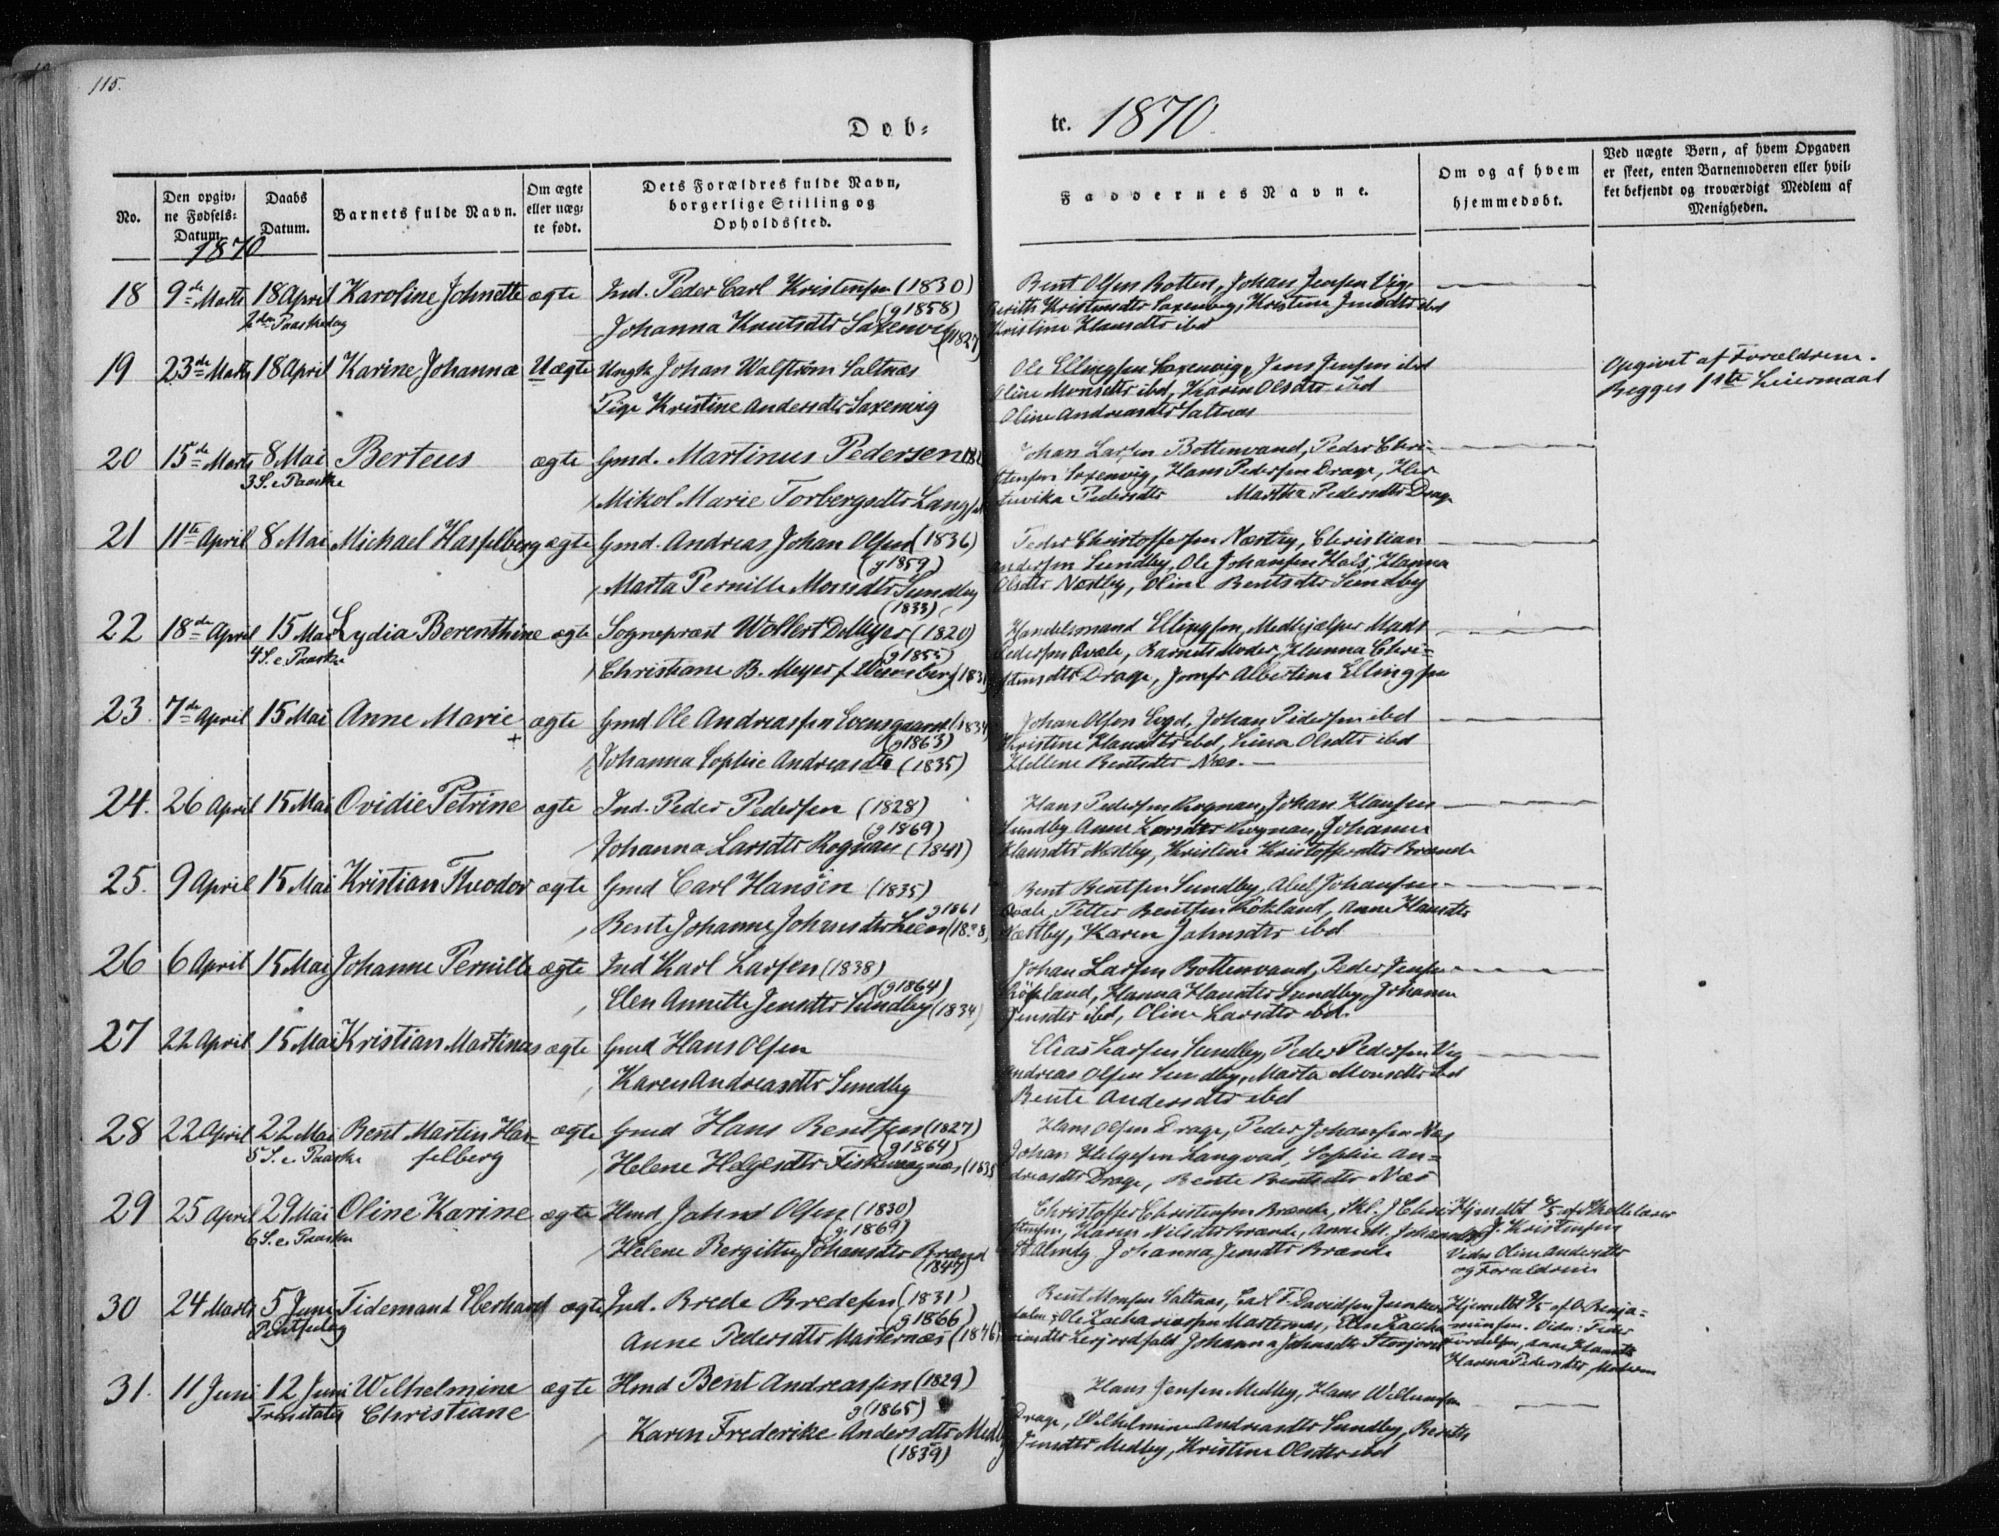 115.
Døb-
te. 1870.
No.
Den opgiv-
ne Fødsels-
Datum.
1870
Daabs
Datum.
Barnets fulde Navn.
Om ægte
eller uæg-
te født.
Dets Forældres fulde Navn,
borgerlige Stilling og
Opholdssted.
Faddernes Navne.
Om og af hvem
hjemmedøbt.
Ved uægte Børn, af hvem Opgaven
er skeet, enten Barnemoderen eller hvil-
ket bekjendt og troværdigt Medlem af
Menigheden.
18 9de Marts 18 April Karoline Johnette ægte Ind. Peder Carl Kristensen (1830) Bent Olsen Botten, Johan Jensen Vig,
2den Paaskedag (g 1858) Berith Kristensdtr Saxenvig, Kristine Jensdtr ibd
Johanna Knutsdtr Saxenvig (1827) Kristine Hansdtr ibd
19 23de Marts 18 April Karine Johanna Uægte Ungk. Johan Walstrøm Saltnæs Ole Ellingsen Saxenvig, Jens Jensen ibd Opgivet af Forældrene.
Oline Monsdtr ibd, Karen Olsdtr ibd Begges 1ste Leiermaal
Pige Kristine Andersdtr Saxenvig Oline Andreasdtr Saltnæs
20 15de Marts 8 Mai Berteus ægte Gmd. Martinus Pedersen Johan Larsen Bottenvand, Peder Chri-
3 S. e Paaske stensen Saxenvig, Hans Pedersen Drage,
Mikol Marie Torbergsdtr Pedersdtr Martha Pedersdtr Drage
21 11te April 8 Mai Michael Hasselberg ægte Gmd. Andreas Johan Olsen (1836) Peder Christoffersen Næstby, Christian
(g 1859) Andersen Sundby, Ole Johansen Hals, Hanna
Marta Pernille Monsdtr Sundby Olsdtr Næstby, Oline Bentsdtr Sundby
(1833)
22 18de April 15 Mai Lydia Berenthine ægte Sognepræst Wollert D. Meyer (1820) Handelsmand Ellingsen, Medhjælper Mads
4 S. e Paaske (g 1855) Pedersen Qvæle, Barnets Moder, Hanna Chri-
Christiane B. Meyer f. stensdtr Drage, Jomfr Albertine Ellingsen
23. 7de April 15 Mai Anne Marie ægte Gmd Ole Andreassen Evensgaard (1834) Johan Olsen Evgd, Johan Pedersen ibd
+ (g 1863) Kristine Hansdtr ibd, Lina Olsdtr ibd
Johanna Sophie Andreasdtr (1835) Hellene Bentsdtr Næs. —
24. 26 April 15 Mai Ovidie Petrine ægte Ind. Peder Pedersen (1828) Hans Pedersen Rognan, Johan Hansen
(g 1869) Sundby Anne Larsdtr Rognan, Johanne
Johanna Larsdtr Rognan (1841) Hansdtr Næstby, Kristine Kristoffersdtr Brænde
25. 9 April 15 Mai Kristian Theodor ægte Gmd Carl Hansen (1835) Bent Bentsen Sundby, Abel Johansen
g 1861 Qvæle, Petter Bentsen Rökland, Anne Hansdtr
Bente Johanne Johansdtr Næstby, Karen Johnsdtr ibd
26 6 April 15 Mai Johanne Pernille ægte Ind Karl Larsen (1838) Johan Larsen Bottenvand, Peder Jensen
(g 1864) Rökland, Hanna Hansdtr Sundby, Johanna
Elen Annette Jensdtr Sundby (1834) Jensdtr ibd, Oline Larsdtr ibd.
27 22 April 15 Mai Kristian Martinus ægte Gmd Hans Olsen Elias Larsen Sundby, Peder Pedersen Vig
Andreas Olsen Sundby, Marta Monsdtr ibd
Karen Andreasdtr Sundby Bente Andersdtr ibd
28 22 April 22 Mai Bent Martin Has- ægte Gmd Hans Bentsen (1827) Hans Olsen Drage, Peder Johansen Næs
5 S. e Paaske selberg (g 1864) Johan Helgesen Langvad, Sophie An-
Helene Helgesdtr dreasdtr Drage, Bente Bentsdtr Næs
29 25 April 29 Mai Oline Karine ægte Hmd John Olsen (1830) Christoffer Christensen Brænde, Skl. J Chri- Hjemdbt af Skolelærer
6 S. e Paaske (g. 1869) stensen, Karen Nilsdtr Brænde, Anne M. Johansdtr J. Kristensen
Helene Bergitte Johansdtr Brænd Johanna Jensdtr Brænde Vidn Oline Andersdtr
(1847) og Forældrene
30 24 Marts 5 Juni Tidemand Eberhard ægte Ind. Brede Bredesen (1831) Bent Monsen Saltnæs, Carl F. Davidsen Junkers- Hjemdbt af O. Benja-
Pintsedag (g 1866) dalen, Ole Zachariassen minsen. Vidn: Peder
Anne Pedersdtr (1846) Johanna Johnsdtr Storjord
Hanna Pedersdtr,
31. 11 Juni 12 Juni Wilhelmine ægte Hmd Bent Andreassen (1829) Hans Jensen Medby, Hans Willumsen
Trinitatis Christiane g (1865) Drage, Wilhelmine Andreasdtr Sundby, Berith
Karen Frederike Andersdtr Medby Jensdtr Medby, Kristine Olsdtr ibd
(1839)